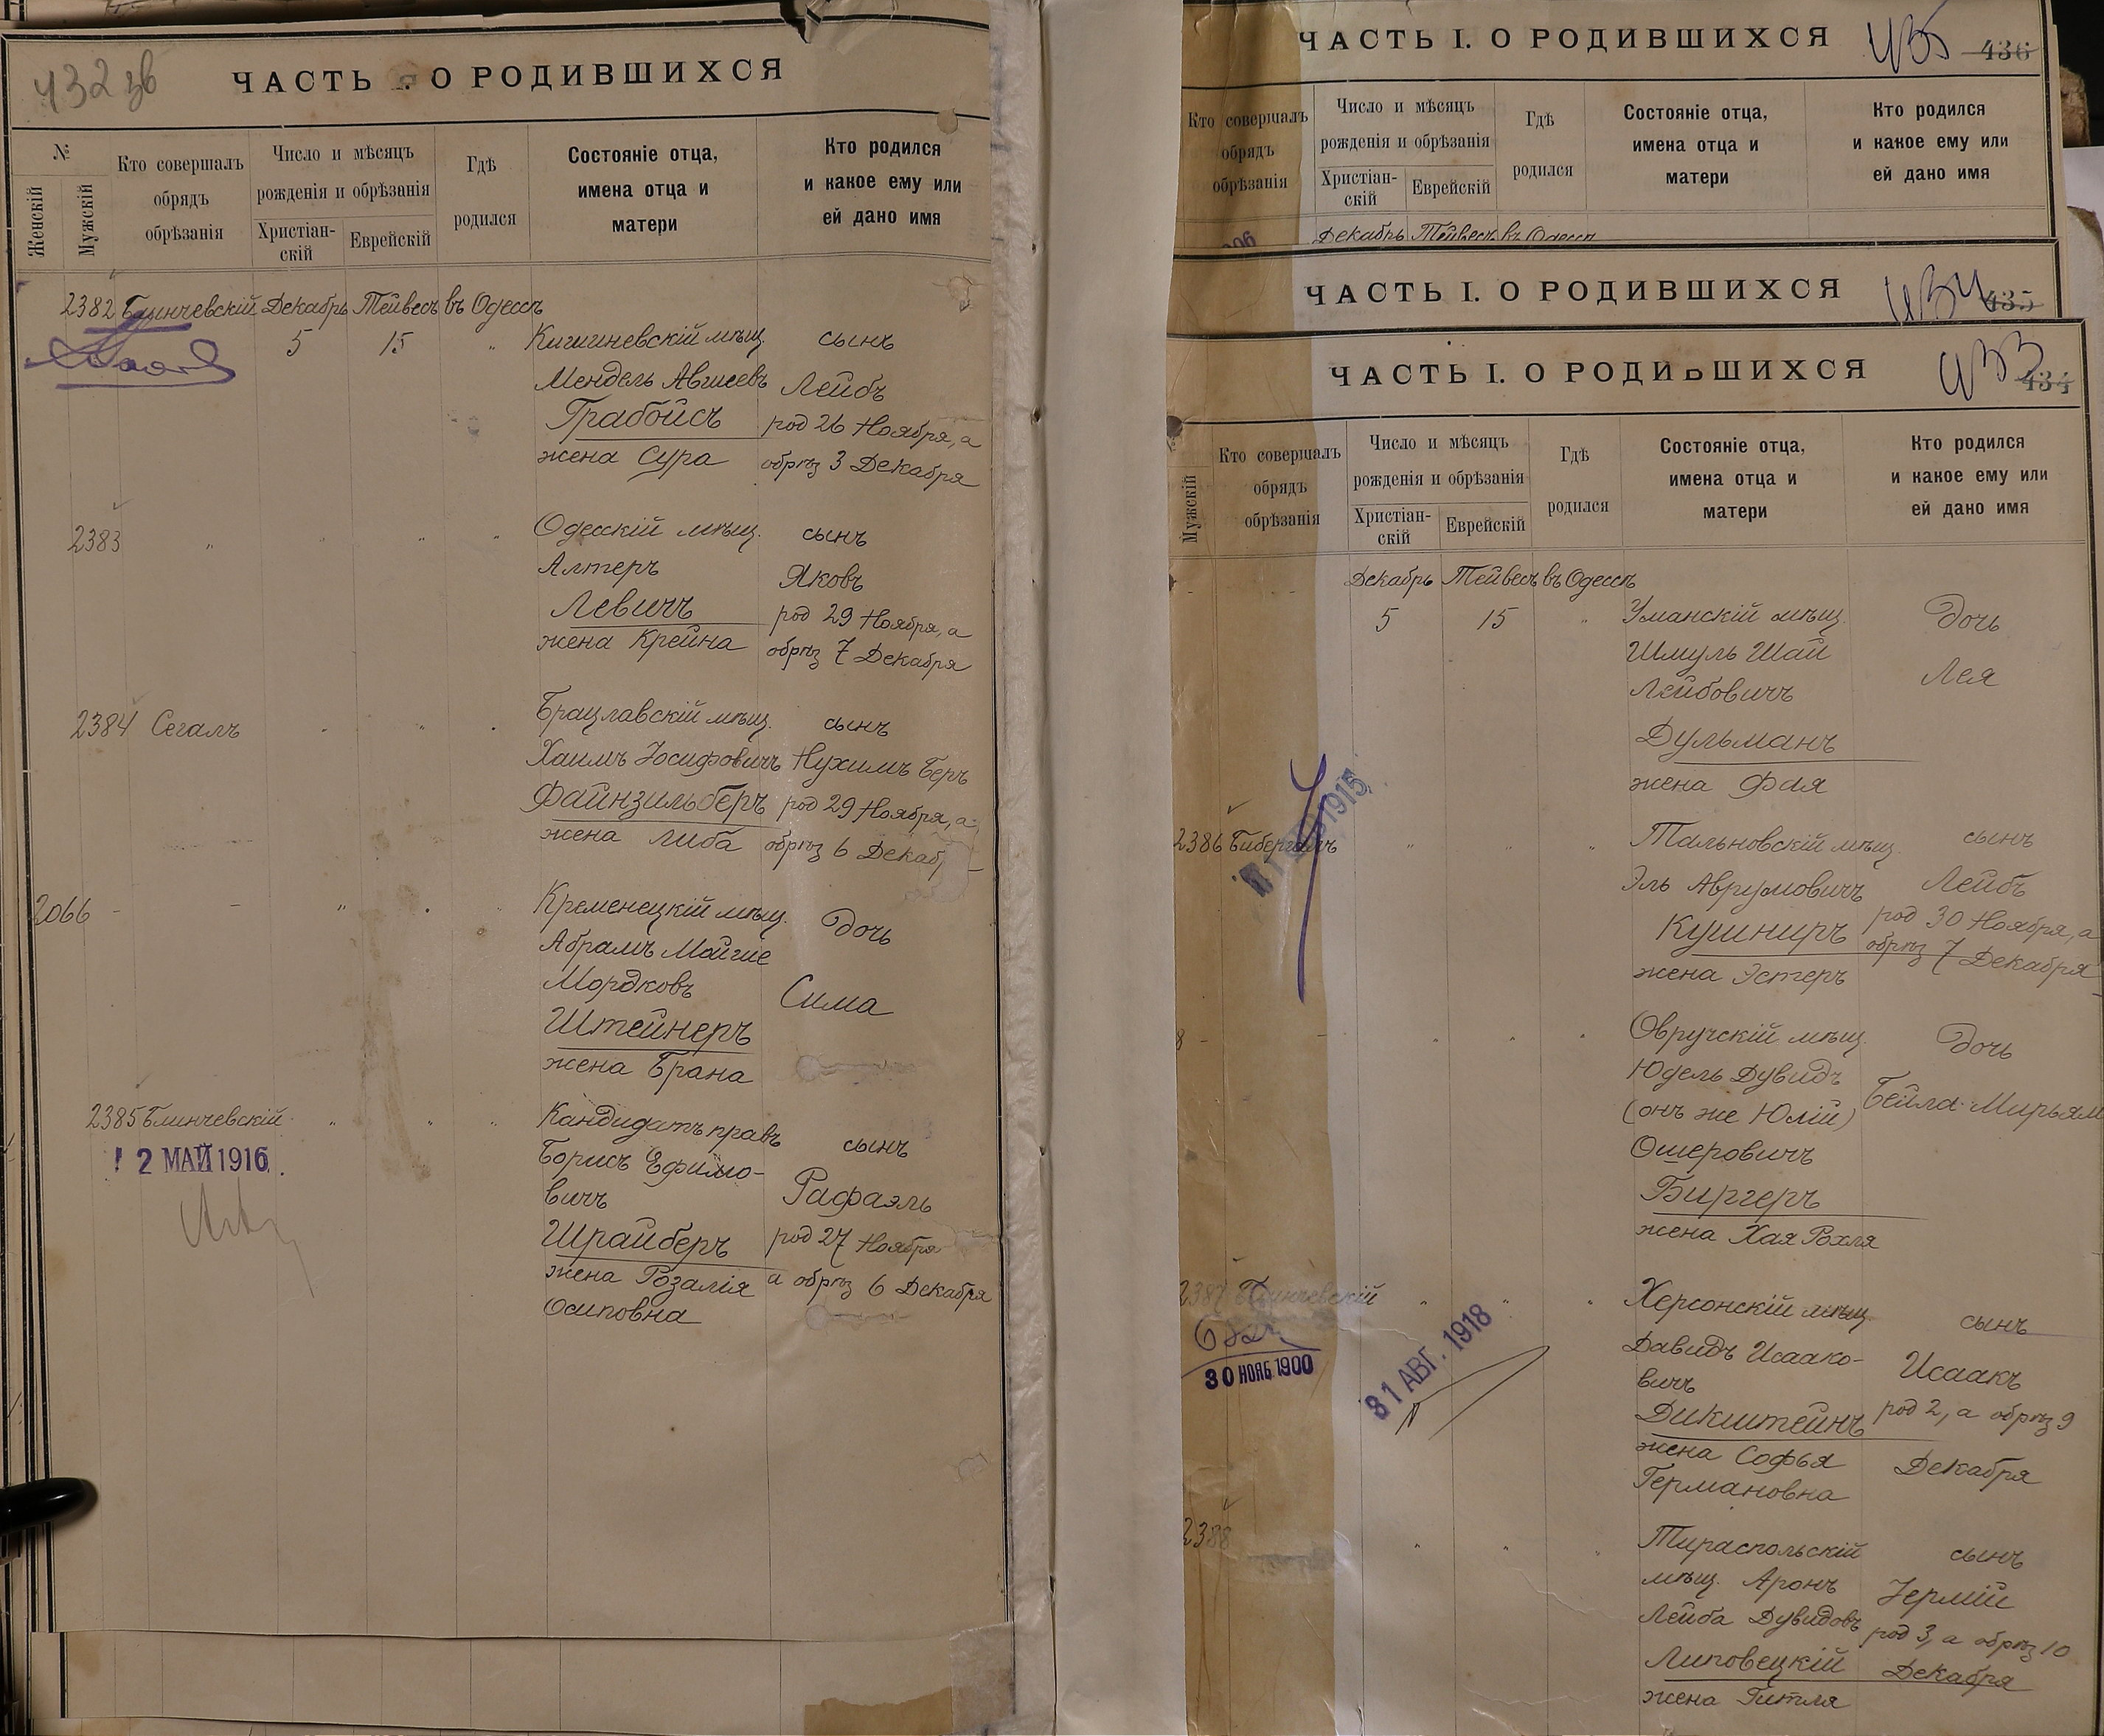 432 зв
ЧАСТЬ I. О РОДИВШИХСЯ
№
Женскій
Мужскій
Кто совершалъ
обрядъ
обрѣзанія
Число и мѣсяцъ
рожденія и обрѣзанія
Христіан-
скій
Еврейскій
Гдѣ
родился
Состояніе отца,
имена отца и
матери
Кто родился
и какое ему или
ей дано имя
2382 Блинчевскій Декабрь Тейвесъ въ Одессѣ
5 15 " Кишиневскій мѣщ. сынъ
Мендель Авшеевъ Лейбъ
Грабойсъ род 26 Ноября, а
жена Сура обрѣз 3 Декабря
2383 " " " " Одесскій мѣщ. сынъ
Алтеръ Яковъ
Левичъ род 29 Ноября, а
жена Крейна обрѣз 7 Декабря
2384 Сегалъ " " " Брацлавскій мѣщ. сынъ
Хаимъ Іосифовичъ Нухимъ Беръ
Файнзильберъ род 29 Ноября, а
жена Либа обрѣз 6 Декаб
2066 - - " " Кременецкій мѣщ. Дочь
Абрамъ Мойше
Мордковъ Сима
Штейнеръ
жена Брана
2385 Блинчевскій " " " Кандидатъ правъ сынъ
12 МАЙ 1916
Борисъ Ефимо-
вичъ Рафаэль
Шрайберъ род 27 Ноября
жена Розалія а обрѣз 6 Декабря
Осиповна
ЧАСТЬ I. О РОДИВШИХСЯ 435 436
Кто совершалъ
обрядъ
обрѣзанія
Число и мѣсяцъ
рожденія и обрѣзанія
Христіан-
скій
Еврейскій
Гдѣ
родился
Состояніе отца,
имена отца и
матери
Кто родился
и какое ему или
ей дано имя
Декабрь Тейвесъ въ Одессѣ
ЧАСТЬ I. О РОДИВШИХСЯ 434 435
ЧАСТЬ I. О РОДИВШИХСЯ 433 434
Мужскій
Кто совершалъ
обрядъ
обрѣзанія
Число и мѣсяцъ
рожденія и обрѣзанія
Христіан-
скій
Еврейскій
Гдѣ
родился
Состояніе отца,
имена отца и
матери
Кто родился
и какое ему или
ей дано имя
Декабрь Тейвесъ въ Одессѣ
5 15 " Уманскій мѣщ. Дочь
Шмуль Шай
Лейбовичъ Лея
Дульманъ
жена Фая
2386 Бибергалъ " " " Тальновскій мѣщ. сынъ
1915
Эль Аврумовичъ Лейбъ
Кушниръ род 30 Ноября, а
жена Эстеръ обрѣз 7 Декабря
8 - " " " Овручскій мѣщ. Дочь
Юдель Дувидъ
(онъ же Юлій) Бейла-Мирьям
Ошеровичъ
Биргеръ
жена Хая Рохля
2387 Блинчевскій " " " Херсонскій мѣщ. сынъ
30 НОЯБ 1900
31 АВГ. 1918
Давидъ Исаако-
вичъ Исаакъ
Дикштейнъ род 2, а обрѣз 9
жена Софья Декабря
Германовна
2388 " " " Тираспольскій сынъ
мѣщ. Аронъ Іермій
Лейба Дувидовъ род 3, а обрѣз 10
Липовецкій Декабря
жена Гитля